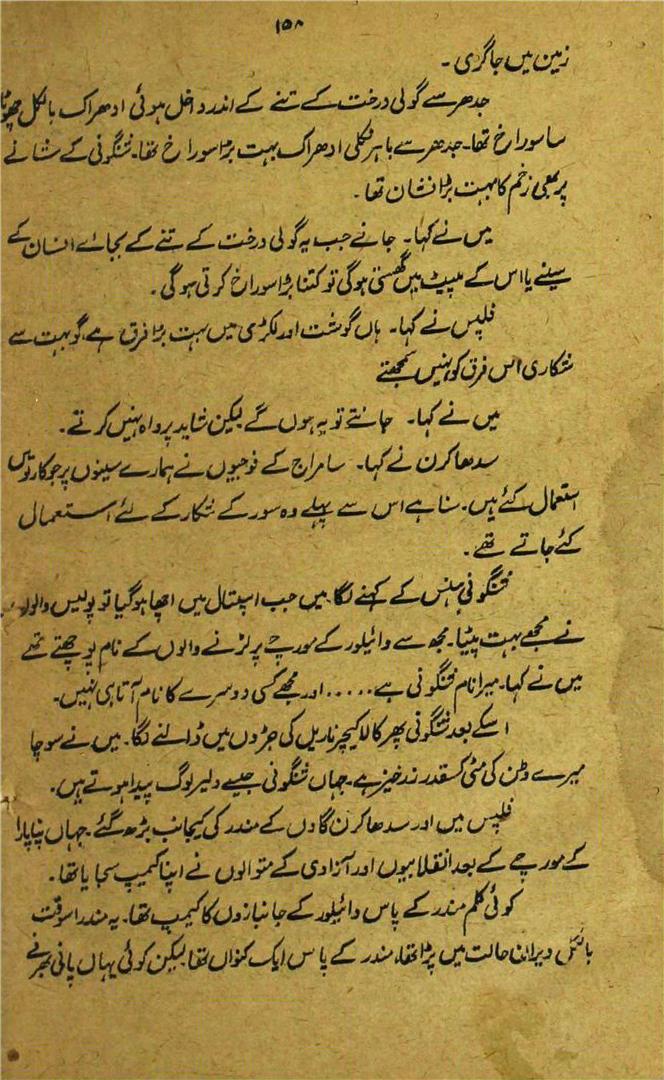 ۱۵۸
زمین میں جاگری ۔
جدھر سے گولی درخت کے تنے کے اندر داخل ہوئی ادھر اک بالکل چھوٹا
سا سوراخ تھا۔ جدھر سے باہر نکلی ادھر اک بہت بڑا سوراخ تھا۔ تنگونی کے شانے
پر بھی زخم کا بہت بڑا نشان تھا ۔
میں نے کہا۔ جانے جب یہ گولی درخت کے تنے کے بجائے انسان کے
سینے یا اس کے پیٹ میں گھستی ہوگی تو کتنا بڑا سوراخ کرتی ہوگی ۔
فلپس نے کہا۔ ہاں گوشت اور لکڑی میں بہت بڑا فرق ہے، گو بہت سے
شکاری اس فرق کو نہیں سمجھتے
میں نے کہا۔ جانتے تو یہ ہوں گے لیکن شاید پرواہ نہیں کرتے۔
سدھاکرن نے کہا۔ سامراج کے فوجیوں نے ہمارے سینوں پر جو کارتوس
استعمال کئے ہیں۔ سنا ہے اس سے پہلے وہ سور کے شکار کے لئے استعمال
کئے جاتے تھے ۔
تنگونی ہنس کے کہنے لگا۔ میں جب اسپتال میں اچھا ہوگیا تو پولیس والوں
نے مجھے بہت پیٹا۔ مجھ سے وائیلور کے مورچے پر لڑنے والوں کے نام پوچھتے تھے
میں نے کہا۔ میرا نام تنگونی ہے ..... اور مجھے کسی دوسرے کا نام آتا ہی نہیں۔
اسکے بعد تنگونی پھر کالا کیچڑ ناریل کی جڑوں میں ڈالنے لگا۔ میں نے سوچا
میرے وطن کی مٹی کسقدر زرخیز ہے۔ جہاں تنگونی جیسے دلیر لوگ پیدا ہوتے ہیں۔
فلپس میں اور سدھاکرن گاوں کے مندر کی کیجانب بڑھ گئے۔ جہاں پناپارا
کے مورچے کے بعد انقلابیوں اور آزادی کے متوالوں نے اپنا کیمپ سجایا تھا۔
کوئی کلم مندر کے پاس وائیلور کے جانبازوں کا کیمپ تھا۔ یہ مندر اسوقت
بالکل ویران حالت میں پڑا تھا، مندر کے پاس ایک کنواں تھا لیکن کوئی یہاں پانی بھرنے